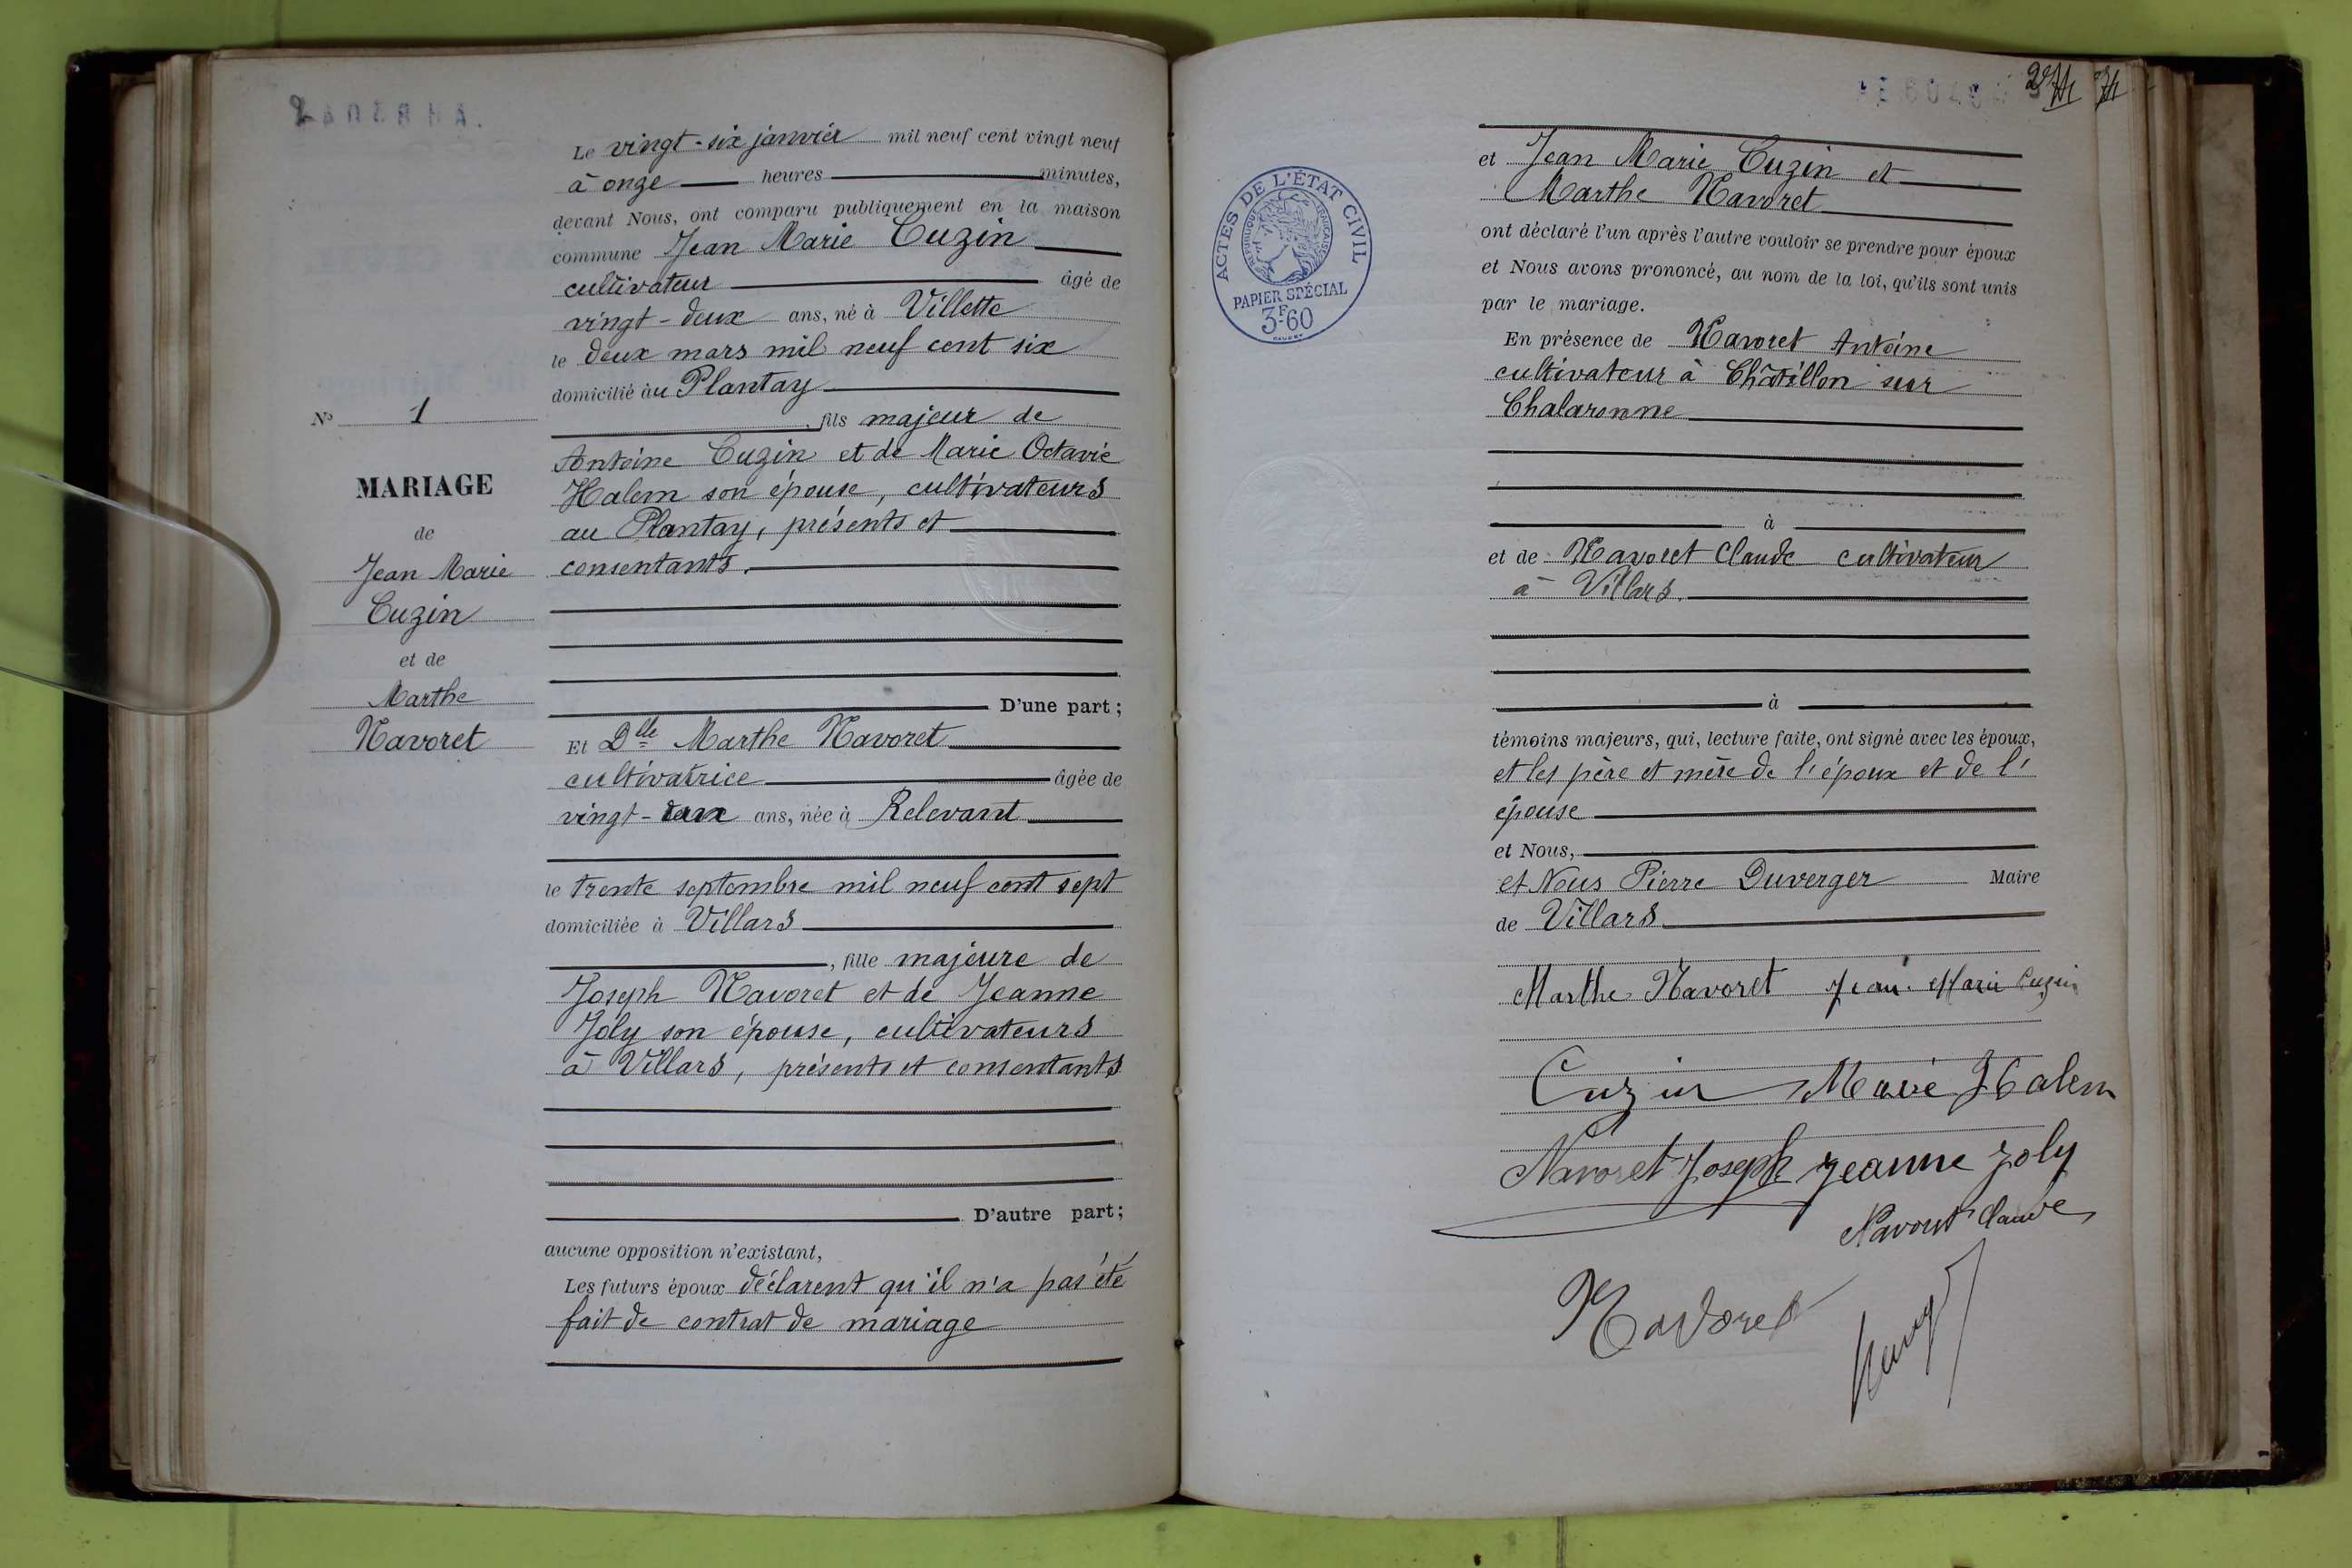 N° 1
MARIAGE
de
Jean Marie
Cuzin
et de
Marthe
Navoret
Le vingt-six janvier mil neuf cent vingt neuf
à onze heures minutes,
devant Nous, ont comparu publiquement en la maison
commune Jean Marie Cuzin
cultivateur âgé de
vingt-deux ans, né à Villette
le deux mars mil neuf cent six
domicilié au Plantay
, fils majeur de
Antoine Cuzin et de Marie Octavie
Halem son épouse, cultivateurs
au Plantay, présents et
consentants.
D'une part;
Et Dlle Marthe Navoret
cultivatrice âgée de
vingt- ans, née à Relevant
le trente septembre mil neuf cent sept
domiciliée à Villars
, fille majeure de
Joseph Navoret et de Jeanne
Joly son épouse, cultivateurs
à Villars, présents et consentants
D'autre part;
aucune opposition n'existant,
Les futurs époux déclarent qu'il n'a pas été
fait de contrat de mariage
ACTES DE L'ÉTAT CIVIL
RÉPUBLIQUE FRANÇAISE
PAPIER SPÉCIAL
3F60
et Jean Marie Cuzin et
Marthe Navoret
ont déclaré l'un après l'autre vouloir se prendre pour époux
et Nous avons prononcé, au nom de la loi, qu'ils sont unis
par le mariage.
En présence de Navoret Antoine
cultivateur à Châtillon sur
Chalaronne
à
et de Navoret Claude cultivateur
à Villars.
à
témoins majeurs, qui, lecture faite, ont signé avec les époux,
et les père et mère de l'époux et de l'
épouse
et Nous,
et Nous Pierre Duverger Maire
de Villars
Marthe Navoret Jean Marie Cuzin
Cuzin Marie Halem
Navoret Joseph Jeanne Joly
Navoret Claude
Navoret